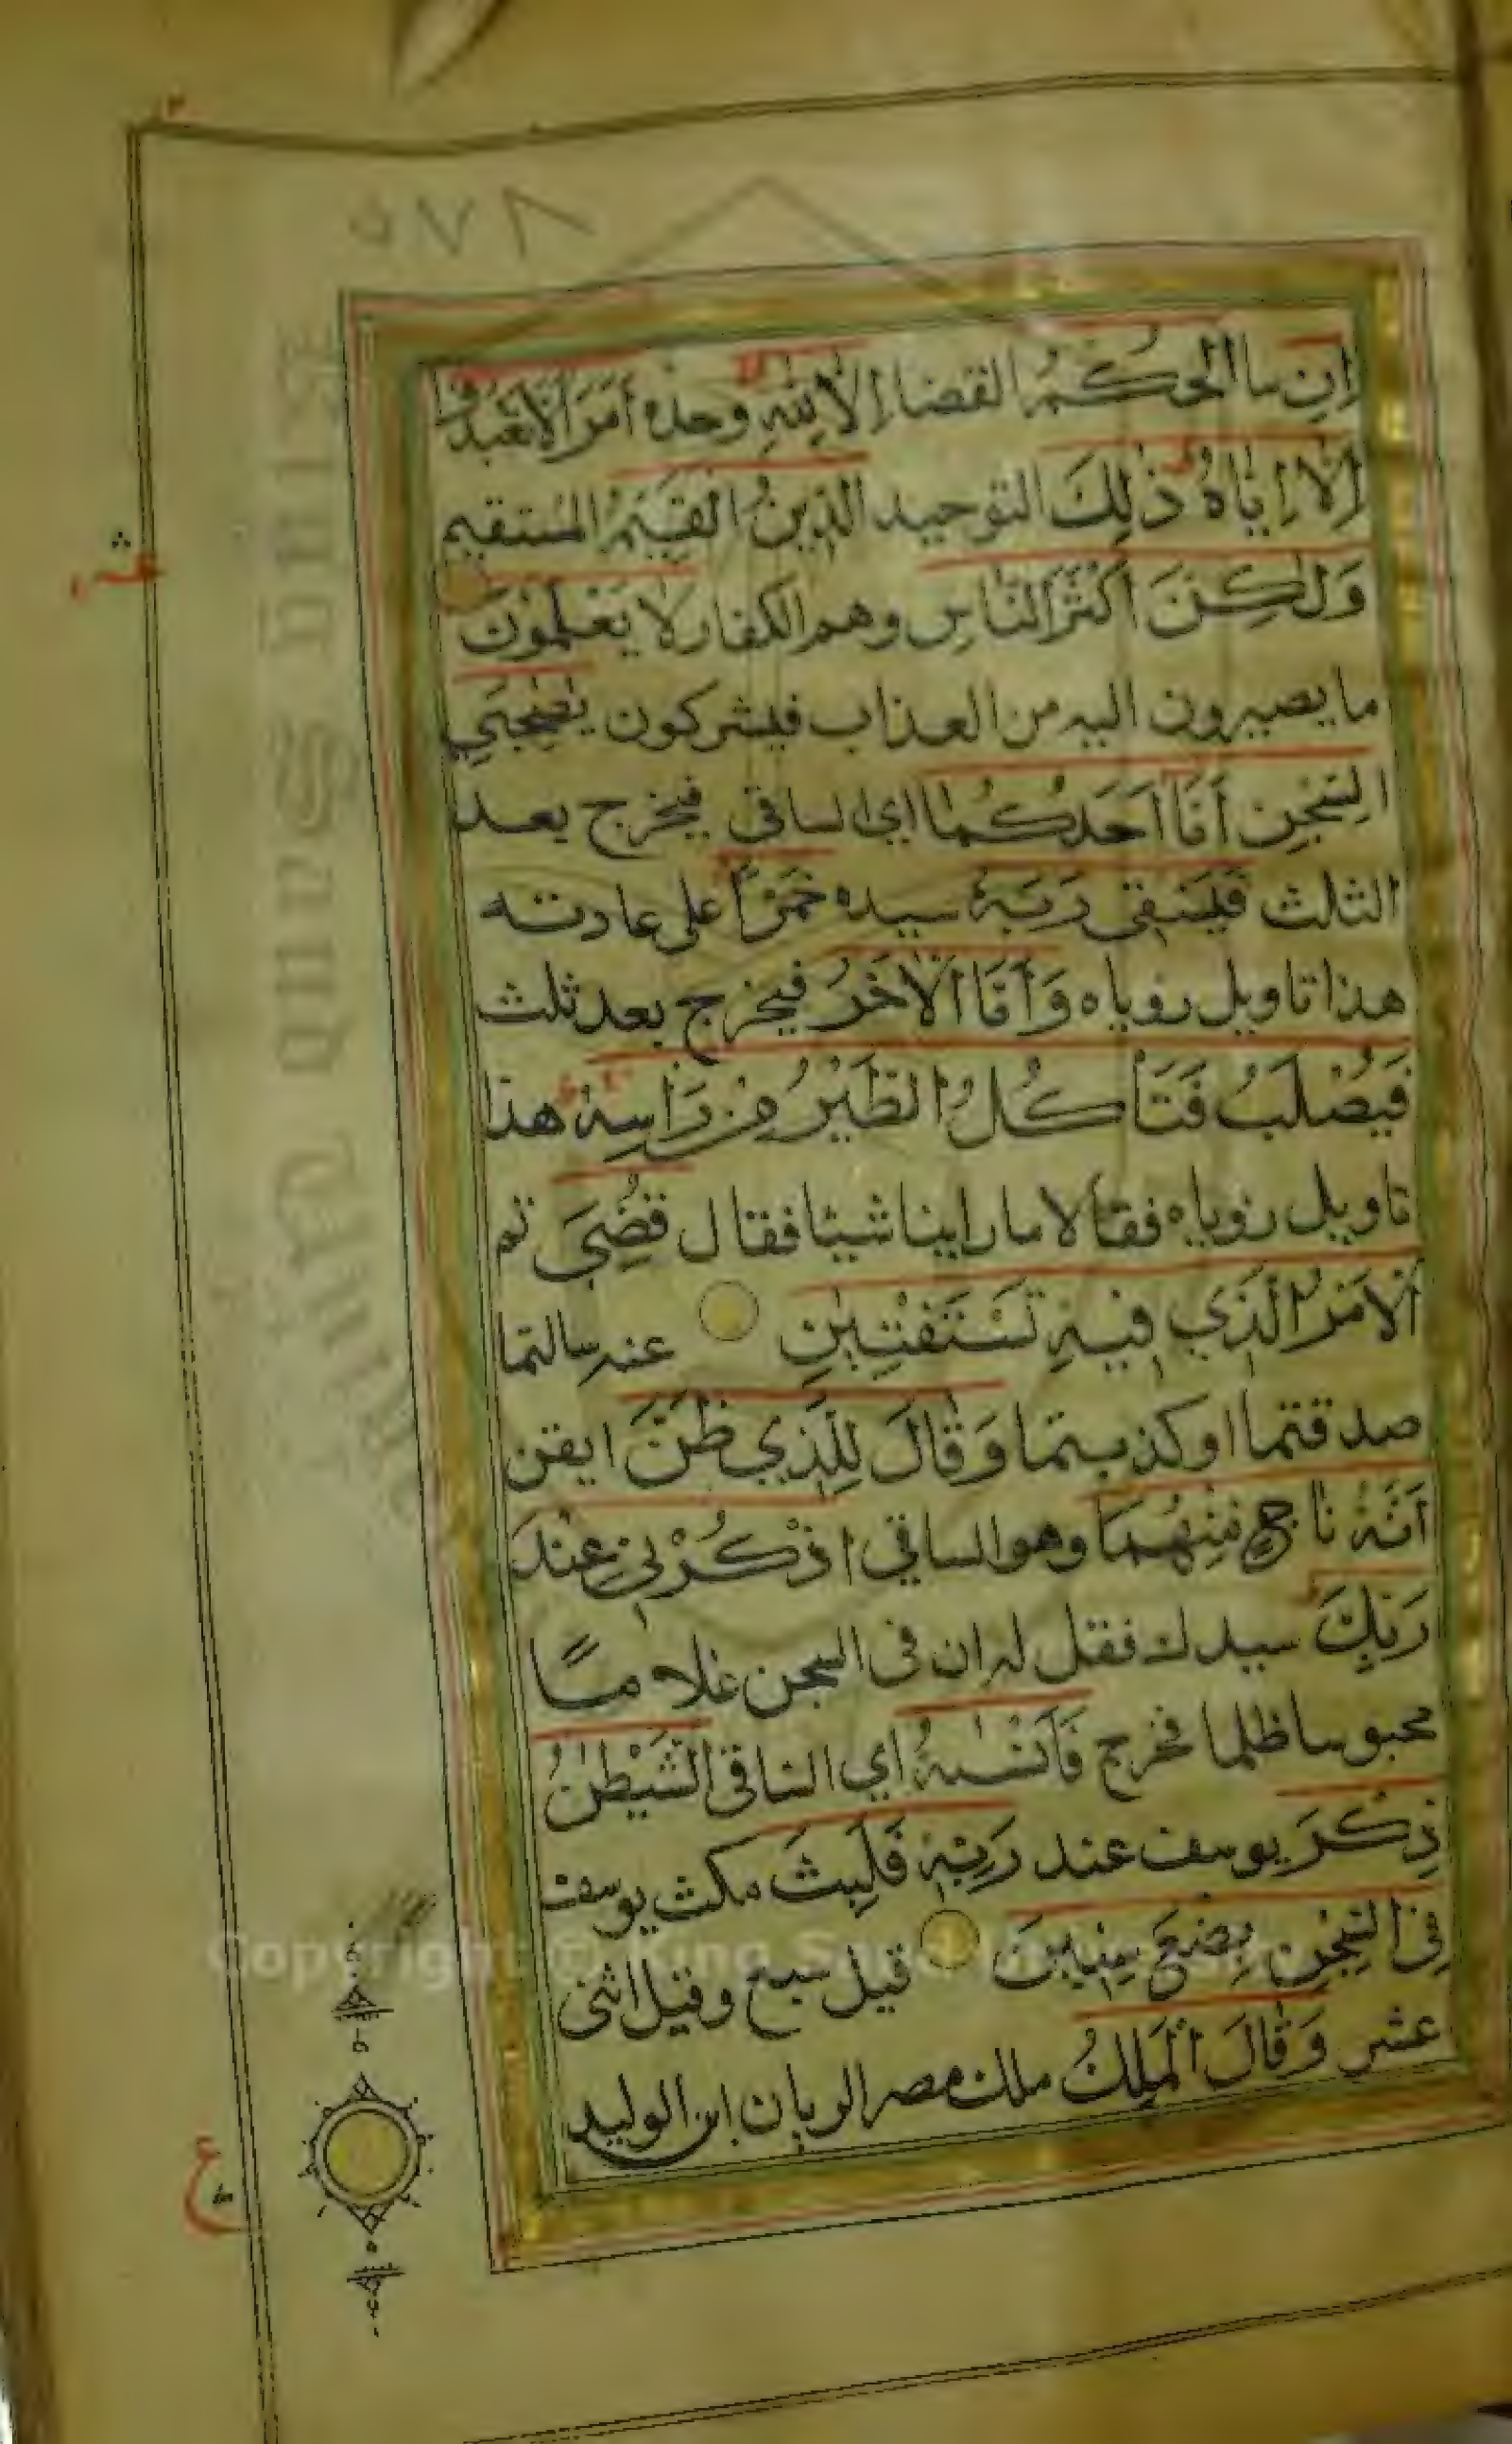 ٥٧٨
اِنِ ما الحُكْمُ القضا اِلَّا لِلّٰهِ وحده اَمَرَ اَلَّا تَعْبُدُوا
اِلَّا اِيَّاهُ ذٰلِكَ التوحيد الدِّينُ القَيِّمُ المستقيم
وَلٰكِنَّ اَكْثَرَ النَّاسِ وهم الكفار لا يَعْلَمُونَ
ما يصيرون اليه من العذاب فيشركون يٰصٰحِبَيِ
السِّجْنِ اَمَّا اَحَدُكُمَا اي الساقي فيخرج بعد
الثلث فَيَسْقِي رَبَّهُ سيده خَمْرًا على عادته
هذا تاويل روياه وَاَمَّا الْاٰخَرُ فيخرج بعد ثلث
فَيُصْلَبُ فَتَاْكُلُ الطَّيْرُ مِنْ رَاْسِهِ هذا
تاويل روياه فقالا ما راينا شيئا فقال قُضِيَ تم
الْاَمْرُ الَّذِي فِيهِ تَسْتَفْتِيٰنِ عنه سالتما
صدقتما او كذبتما وَقَالَ لِلَّذِي ظَنَّ ايقن
اَنَّهُ نَاجٍ مِنْهُمَا وهو الساقي اذْكُرْنِي عِنْدَ
رَبِّكَ سيدك فقل له ان في السجن غلامًا
محبوسا ظلما فخرج فَاَنْسٰىهُ اي الساقي الشَّيْطٰنُ
ذِكْرَ يوسف عند رَبِّهِ فَلَبِثَ مكث يوسف
فِي السِّجْنِ بِضْعَ سِنِينَ قيل سبع وقيل اثنى
عشر وَقَالَ الْمَلِكُ ملك مصر الريان ابن الوليد
ع
Copyright © King Saud University